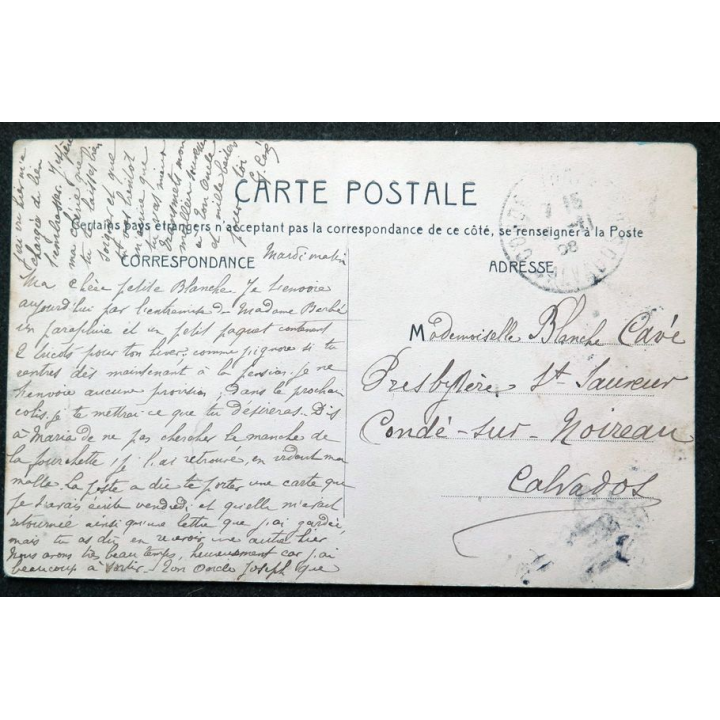 CARTE POSTALE
Certains pays étrangers n'acceptent pas la correspondance de ce côté, se renseigner à la Poste
CORRESPONDANCE
Mardi matin
Ma chère petite Blanche Je t'envoie
aujourd'hui par l'entremise de Madame Barbé
un parapluie et un petit paquet contenant
2 tricots pour ton hiver; comme j'ignore si tu
rentres dès maintenant à la pension. Je ne
t'envoie aucune provision; Dans le prochain
colis, je te mettrai ce que tu désireras. Dis
à Maria de ne pas chercher le manche de
la fourchette, je l'ai retrouvé, en vidant ma
malle. La poste a dû te porter une carte que
je t'avais écrite vendredi et qu'elle m'avait
retournée ainsi qu'une lettre que j'ai gardée
mais tu as dû en recevoir une autre hier
Nous avons très beau temps, heureusement car j'ai
beaucoup à sortir. Ton Oncle Joseph que
j'ai vu hier m'a
chargée de bien
t'embrasser. J'espère
ma chérie que
tu te laisses bien
soigner et que
tout va bientôt
que
meilleur
à ton Oncle
et mille baisers
pour toi
G. Cavé
ADRESSE
Mademoiselle Blanche Cavé
Presbytère St Sauveur
Condé-sur-Noireau
Calvados
15
11
08
CALVADOS